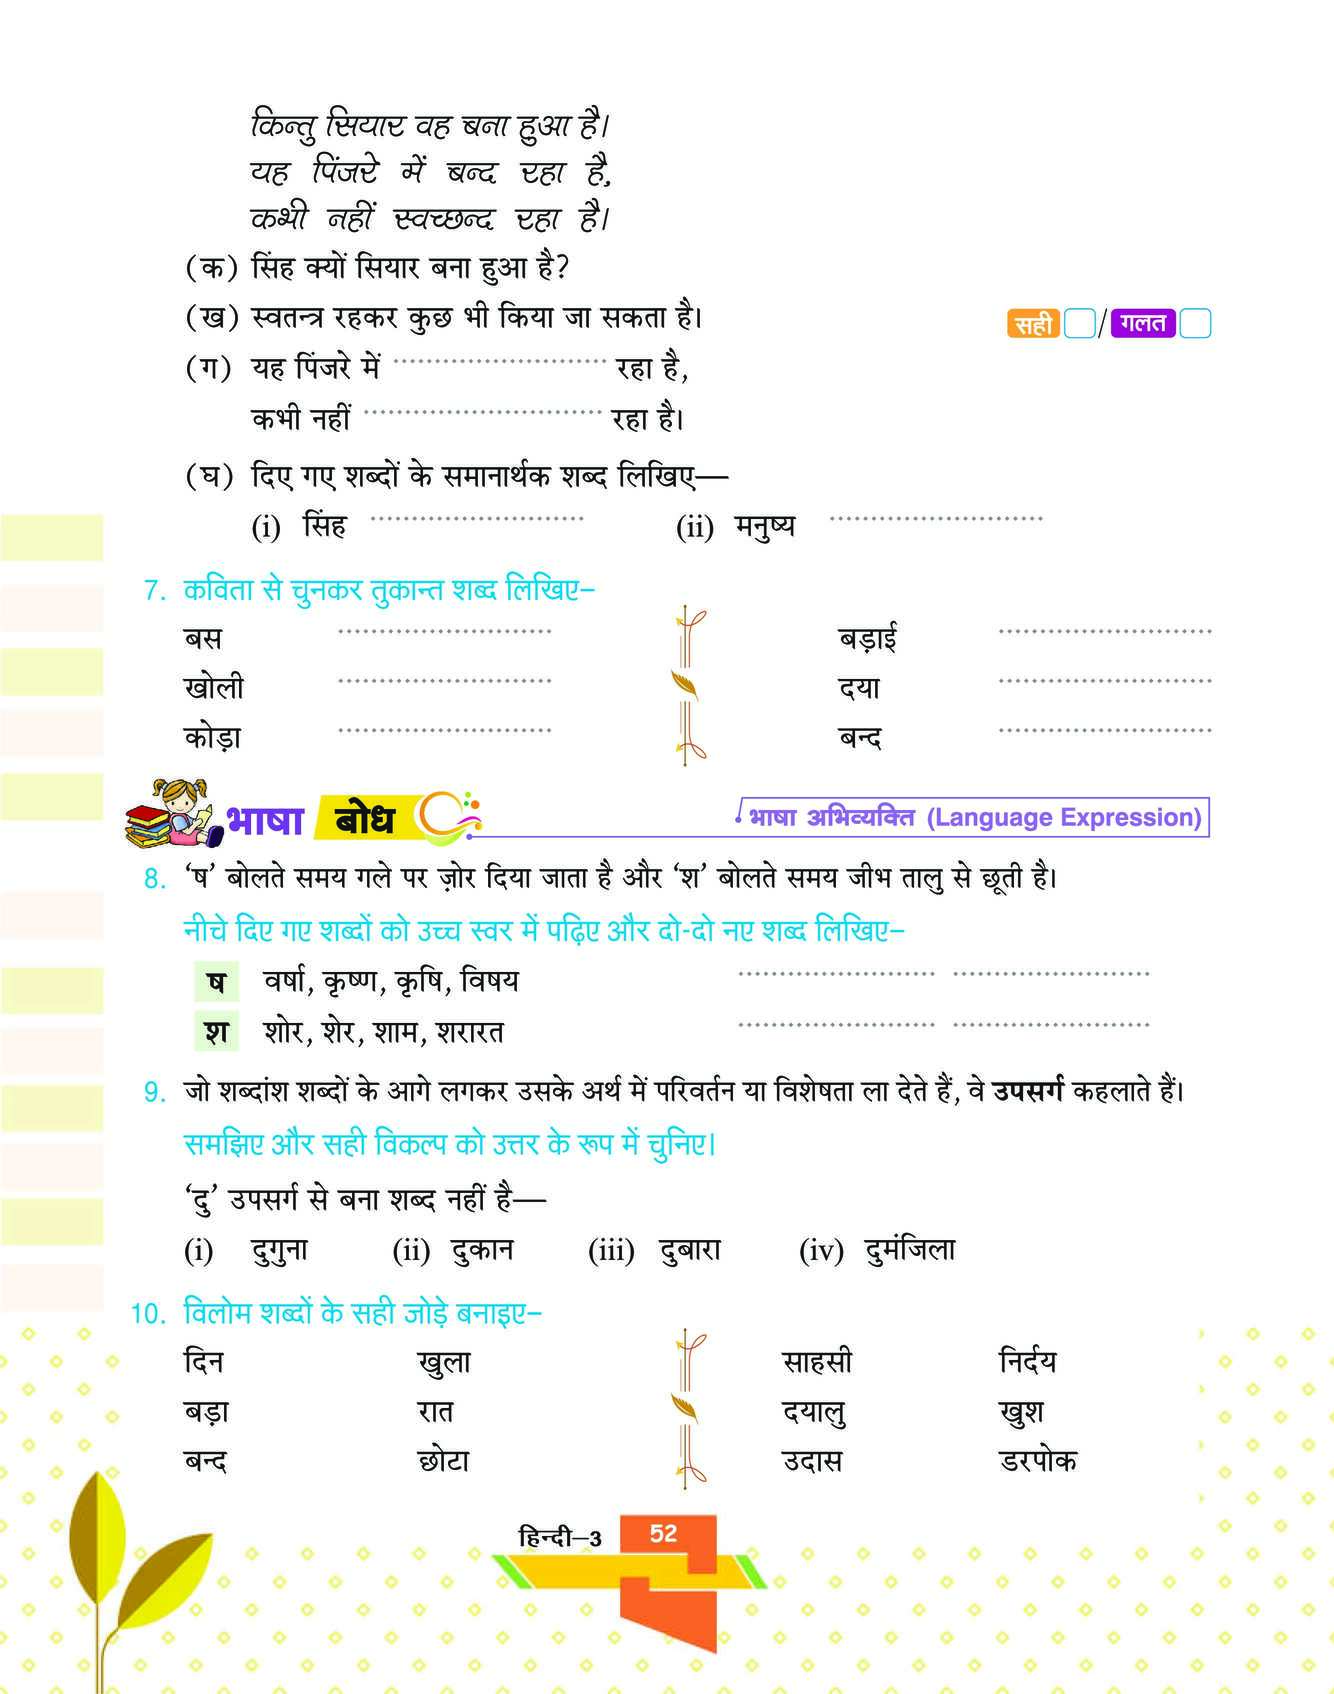 किन्तु सियार वह बना हुआ है।
यह पिंजरे में बन्द रहा है,
कभी नहीं स्वच्छन्द रहा है।
(क) सिंह क्यों सियार बना हुआ है?
(ख) स्वतन्त्र रहकर कुछ भी किया जा सकता है। सही / गलत
(ग) यह पिंजरे में ........................... रहा है,
कभी नहीं .............................. रहा है।
(घ) दिए गए शब्दों के समानार्थक शब्द लिखिए—
(i) सिंह ........................... (ii) मनुष्य ...........................
7. कविता से चुनकर तुकान्त शब्द लिखिए–
बस ........................... बड़ाई ...........................
खोली ........................... दया ...........................
कोड़ा ........................... बन्द ...........................
भाषा बोध भाषा अभिव्यक्ति (Language Expression)
8. ‘ष’ बोलते समय गले पर ज़ोर दिया जाता है और ‘श’ बोलते समय जीभ तालु से छूती है।
नीचे दिए गए शब्दों को उच्च स्वर में पढ़िए और दो-दो नए शब्द लिखिए–
ष वर्षा, कृष्ण, कृषि, विषय ......................... .........................
श शोर, शेर, शाम, शरारत ......................... .........................
9. जो शब्दांश शब्दों के आगे लगकर उसके अर्थ में परिवर्तन या विशेषता ला देते हैं, वे उपसर्ग कहलाते हैं।
समझिए और सही विकल्प को उत्तर के रूप में चुनिए।
‘दु’ उपसर्ग से बना शब्द नहीं है—
(i) दुगुना (ii) दुकान (iii) दुबारा (iv) दुमंजिला
10. विलोम शब्दों के सही जोड़े बनाइए–
दिन खुला साहसी निर्दय
बड़ा रात दयालु खुश
बन्द छोटा उदास डरपोक
हिन्दी–3 52